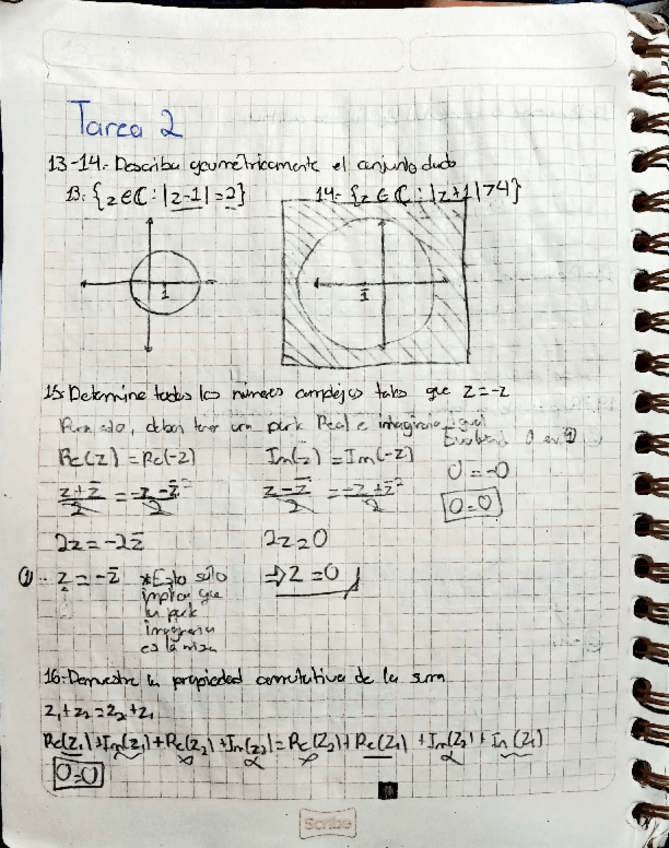 Tarea 2
13-14.- Describa geométricamente el conjunto dado
13: {z∈ℂ: |z-1|=2} 14:- {z∈ℂ: |z+1|>4}
1 1
15: Determine todos los números complejos tales que z=-z
Para esto, deben tener una parte Real e imaginaria igual
Re(z) = Re(-z) Im(z) = Im(-z) 0 en ①
z+z̄/2 = -z-z̄/2 z-z̄/2 = -z+z̄/2 0=-0
0=0
2z=-2z̄ 2z=0
①.. z=-z̄ *Esto sólo ⇒ z=0
implica que
la parte
imaginaria
es la misma
16:-Demuestre la propiedad conmutativa de la suma
z₁+z₂=z₂+z₁
Re(z₁)+Im(z₁)+Re(z₂)+Im(z₂)=Re(z₂)+Re(z₁)+Im(z₂)+Im(z₁)
0=0
Scribe